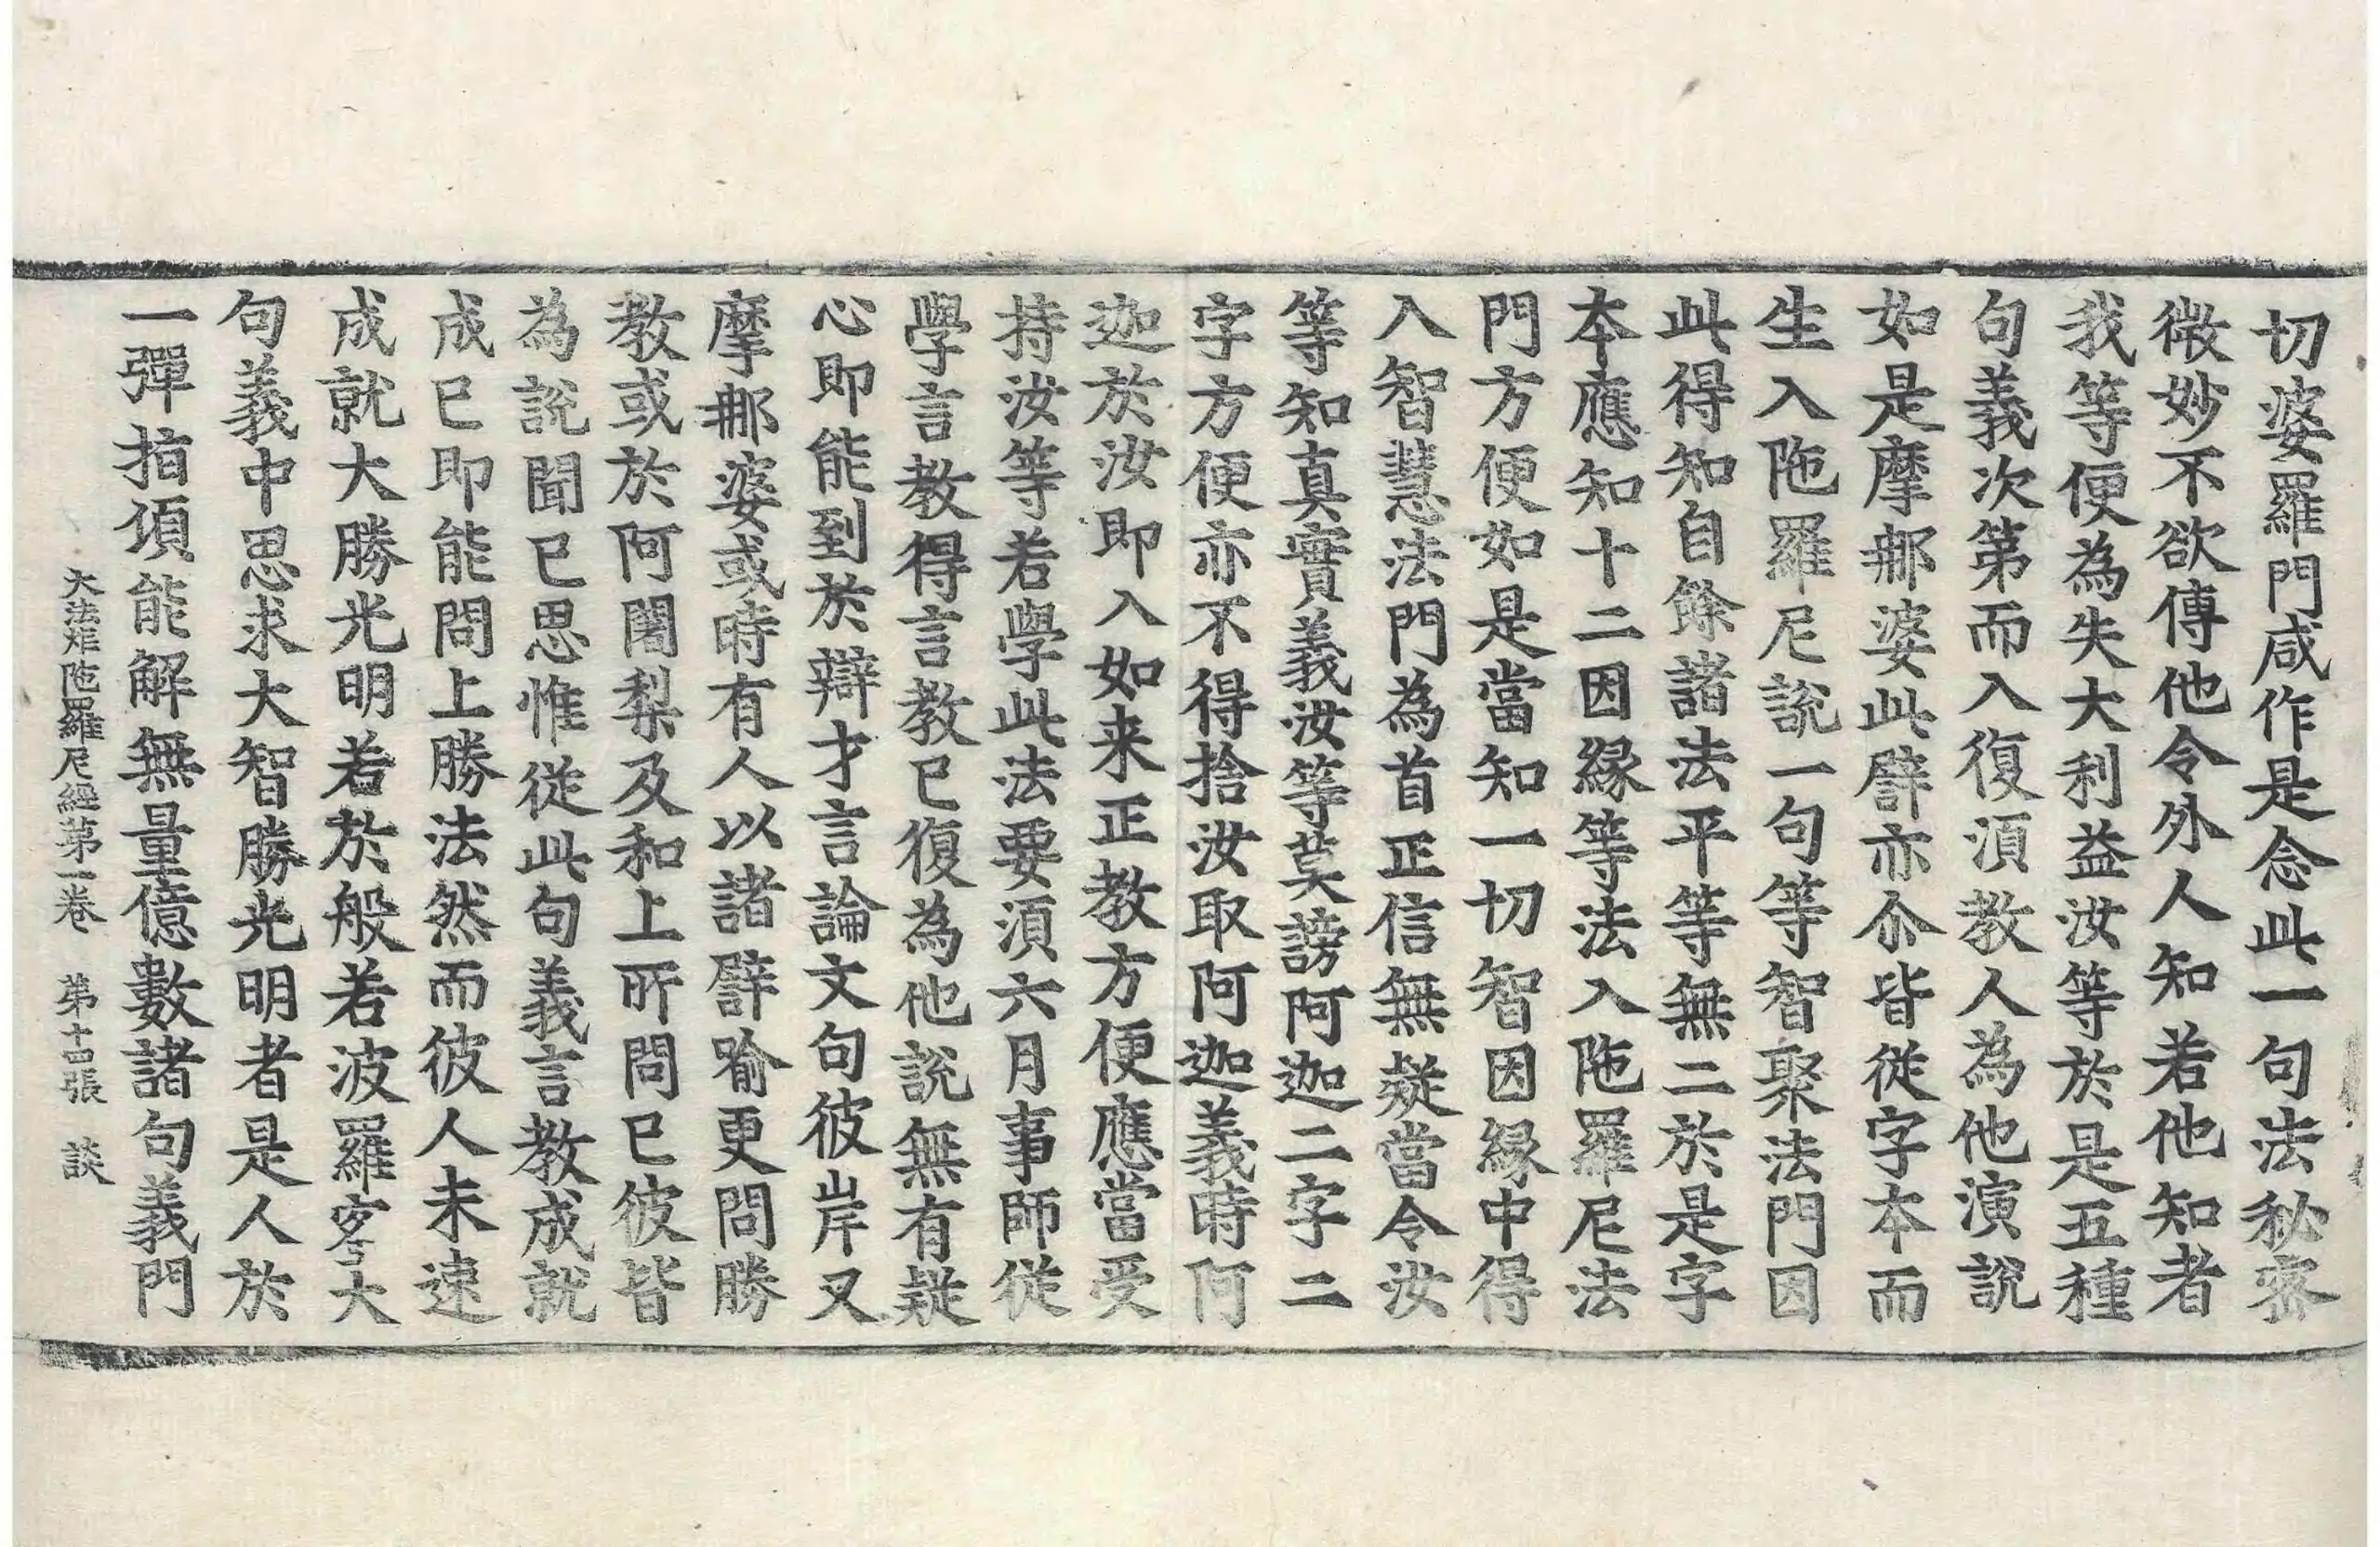 切婆羅門咸作是念此一句法秘宻
微妙不欲傳他令外人知若他知者
我等便為失大利益汝等於是五種
句義次第而入復湏教人為他演說
如是摩那婆此譬亦尒皆從字本而
生入陁羅尼說一句等智聚法門因
此得知自餘諸法平等無二於是字
本應知十二因緣等法入陁羅尼法
門方便如是當知一切智因緣中得
入智慧法門為首正信無疑當令汝
等知真實義汝等莫謗阿迦二字二
字方便亦不得捨汝取阿迦義時阿
迦於汝即入如来正教方便應當受
持汝等若學此法要湏六月事師從
學言教得言教已復為他說無有疑
心即能到於辯才言論文句彼岸又
摩那婆或時有人以諸譬喻更問勝
教或於阿闍梨及和上所問已彼皆
為說聞已思惟從此句義言教成就
成已即能問上勝法然而彼人未速
成就大勝光明若於般若波羅蜜大
句義中思求大智勝光明者是人於
一彈指頃能解無量億數諸句義門
大法炬陁羅尼經第一卷　第十四張　談